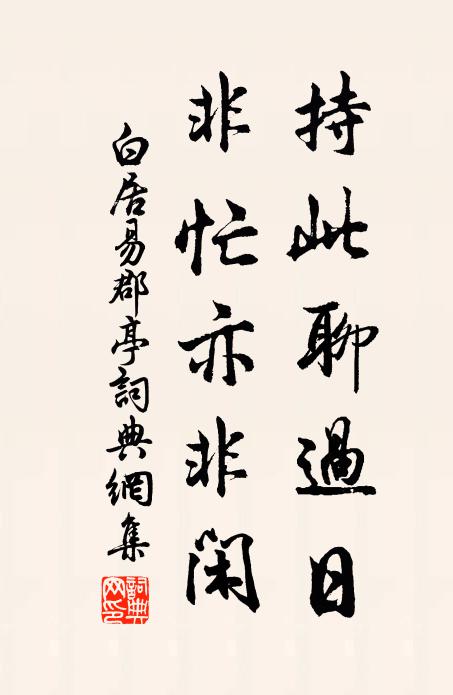 持此聊過日
非忙亦非閑
白居易郡亭詞典網集
詞典網印